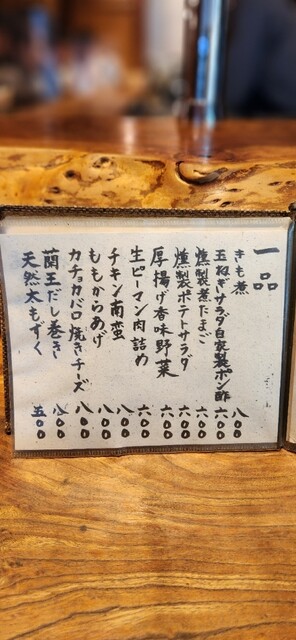 一品
きも煮 八〇〇
玉ねぎサラダ自家製ポン酢 六〇〇
燻製煮たまご 六〇〇
燻製ポテトサラダ 六〇〇
厚揚げ香味野菜 六〇〇
生ピーマン肉詰め 六〇〇
チキン南蛮 八〇〇
ももからあげ 八〇〇
カチョカバロ焼きチーズ 八〇〇
蘭王だし巻き 八〇〇
天然太もずく 五〇〇